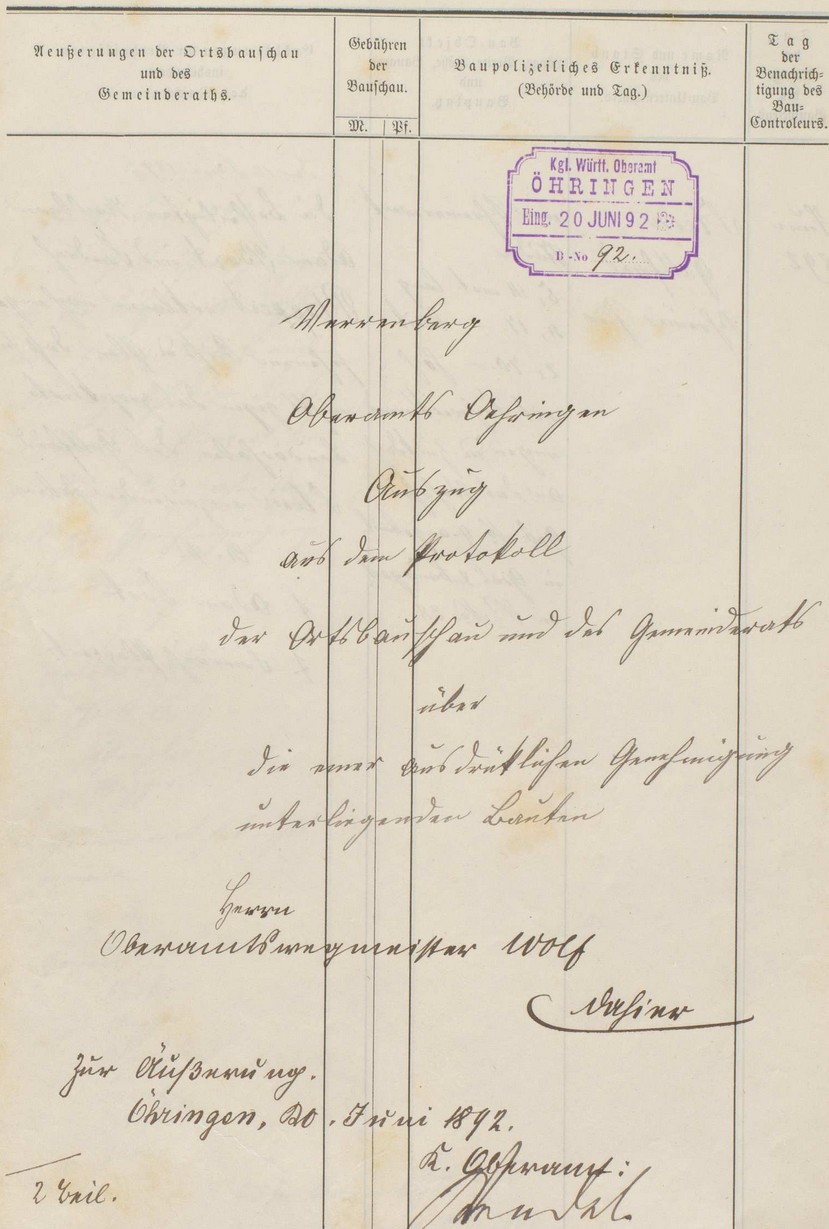 Aeußerungen der Ortsbauschau
und des
Gemeinderaths.
Gebühren
der
Bauschau.
M. Pf.
Baupolizeiliches Erkenntniß.
(Behörde und Tag.)
Tag
der
Benachrich-
tigung des
Bau-
Controleurs.
Kgl. Württ. Oberamt
ÖHRINGEN
Eing. 20 JUNI 92
B-No 92.
Verrenberg
Oberamts Oehringen
Auszug
aus dem Protokoll
der Ortsbauschau und des Gemeinderats
über
die einer ausdrüklichen Genehmigung
unterliegenden Bauten
Herrn
Oberamtswegmeister Wolf
dahier
zur Äußerung.
Öhringen, 20. Juni 1892.
K. Oberamt:
2 Beil.